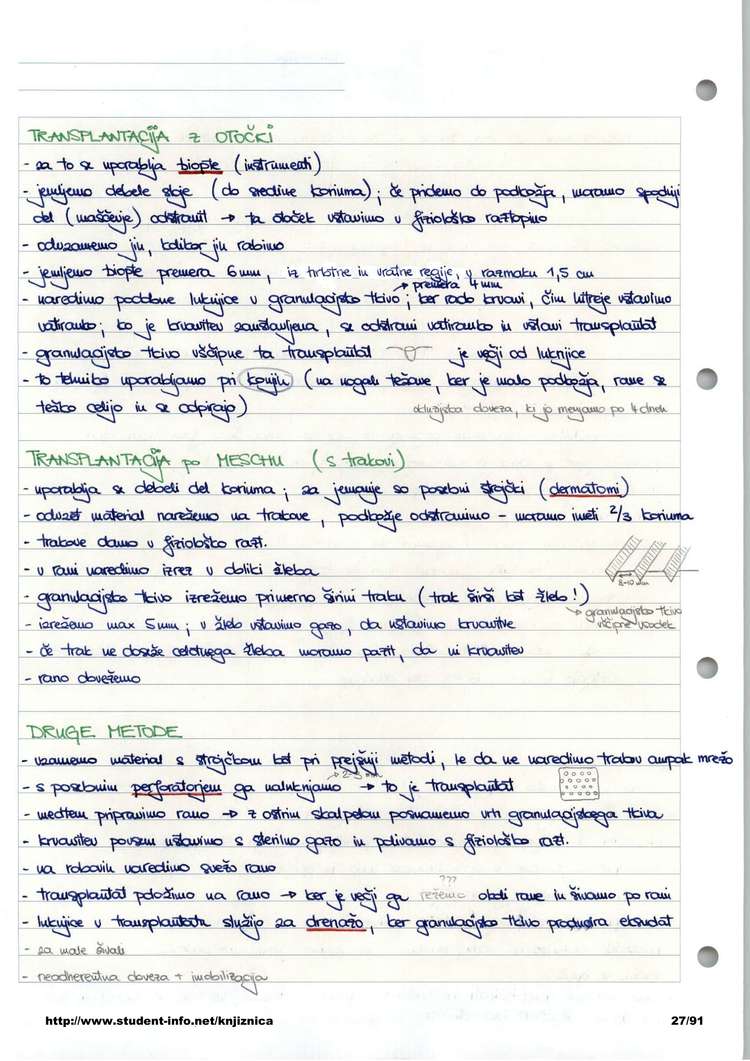 TRANSPLANTACIJA z OTOČKI
- za to se uporablja biopte (instrumenti)
- jemljemo debele sloje (do sredine koriuma); če pridemo do podkožja, moramo spodnji
del (maščevje) odstranit → ta otoček vstavimo v fiziološko raztopino
- odvzamemo jih, kolikor jih rabimo
- jemljemo biopte premera 6mm, iz hrbtne in vratne regije, v razmaku 1,5 cm
→ premera 4mm
- naredimo podobne luknjice v granulacijsko tkivo; ker rado krvavi, čim hitreje vstavimo
vatiranko; ko je krvavitev zaustavljena, se odstrani vatiranko in vstavi transplantat
- granulacijsko tkivo vščipne ta transplantat je večji od luknjice
- to tehniko uporabljamo pri konjih (na nogah težave, ker je malo podkožja, rane se
težko celijo in se odpirajo) okluzijska doveza, ki jo menjamo po 4 dneh
TRANSPLANTACIJA po MESCHU (s trakovi)
- uporablja se debeli del koriuma; za jemanje so posebni strojčki (dermatomi)
- odvzet material narežemo na trakove, podkožje odstranimo - moramo imeti 2/3 koriuma
- trakove damo v fiziološko razt.
- v rani naredimo izrez v obliki žleba
8-10 mm
- granulacijsko tkivo izrežemo primerno širini traku (trak širši kot žleb!)
→ granulacijsko tkivo
vščipne vsadek
- izrežemo max 5mm; v žleb vstavimo gazo, da ustavimo krvavitve
- če trak ne doseže celotnega žleba moramo pazit, da ni krvavitev
- rano dovežemo
DRUGE METODE
- vzamemo material s strojčkom kot pri prejšnji metodi, le da ne naredimo trakov ampak mrežo
→ 2-3 mm
- s posebnim perforatorjem ga naluknjamo → to je transplantat
- medtem pripravimo rano → z ostrim skalpelom posnamemo vrh granulacijskega tkiva
- krvavitev povsem ustavimo s sterilno gazo in polivamo s fiziološko razt.
- na robovih naredimo svežo rano
???
- transplantat položimo na rano → ker je večji ga režemo okoli rane in šivamo po rani
- luknjice v transplantatu služijo za drenažo, ker granulacijsko tkivo producira eksudat
- za male živali
- neadherentna doveza + imobilizacija
http://www.student-info.net/knjiznica 27/91